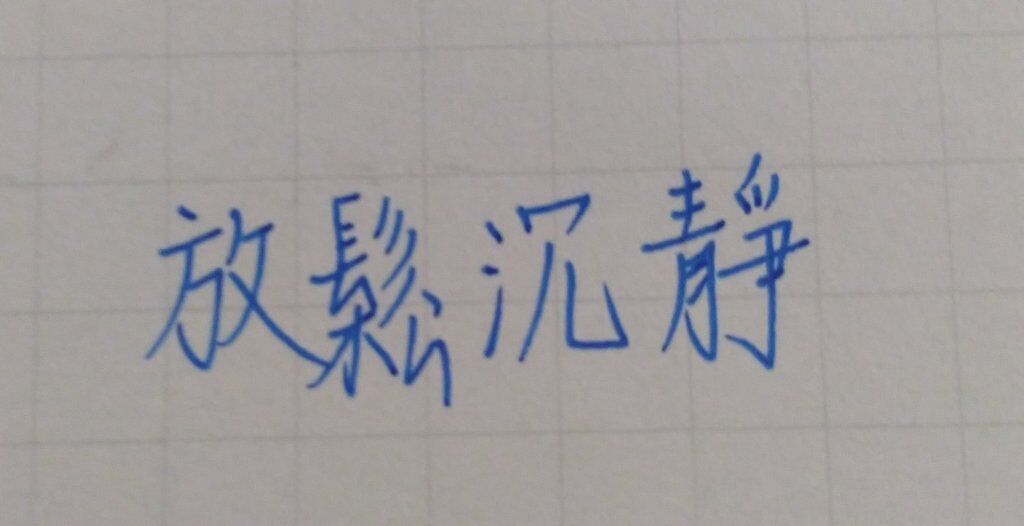 放鬆沉靜